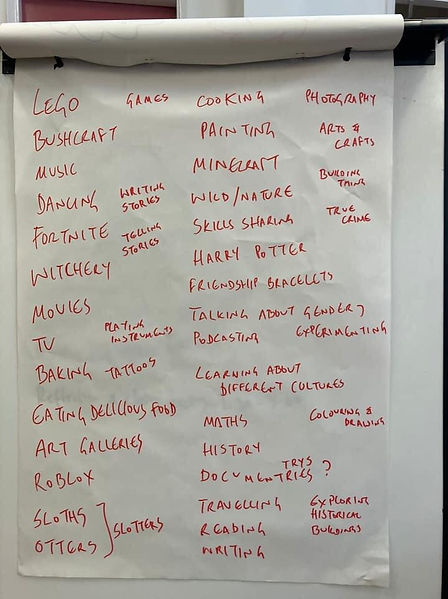 LEGO GAMES COOKING PHOTOGRAPHY
BUSHCRAFT PAINTING ARTS &
CRAFTS
MUSIC MINECRAFT BUILDING
THING
DANCING WRITING
STORIES
WILD/NATURE
FORTNITE TELLING
STORIES
SKILLS SHARING TRUE
CRIME
WITCHERY HARRY POTTER
FRIENDSHIP BRACELETS
MOVIES TALKING ABOUT GENDER?
TV PLAYING
INSTRUMENTS
PODCASTING EXPERIMENTING
BAKING TATTOOS LEARNING ABOUT
DIFFERENT CULTURES
EATING DELICIOUS FOOD MATHS COLOURING &
DRAWING
ART GALLERIES HISTORY
ROBLOX TRYS
DOCUMENTRIES ?
SLOTHS
OTTERS
SLOTTERS
TRAVELLING EXPLORING
HISTORICAL
BUILDINGS
READING
WRITING